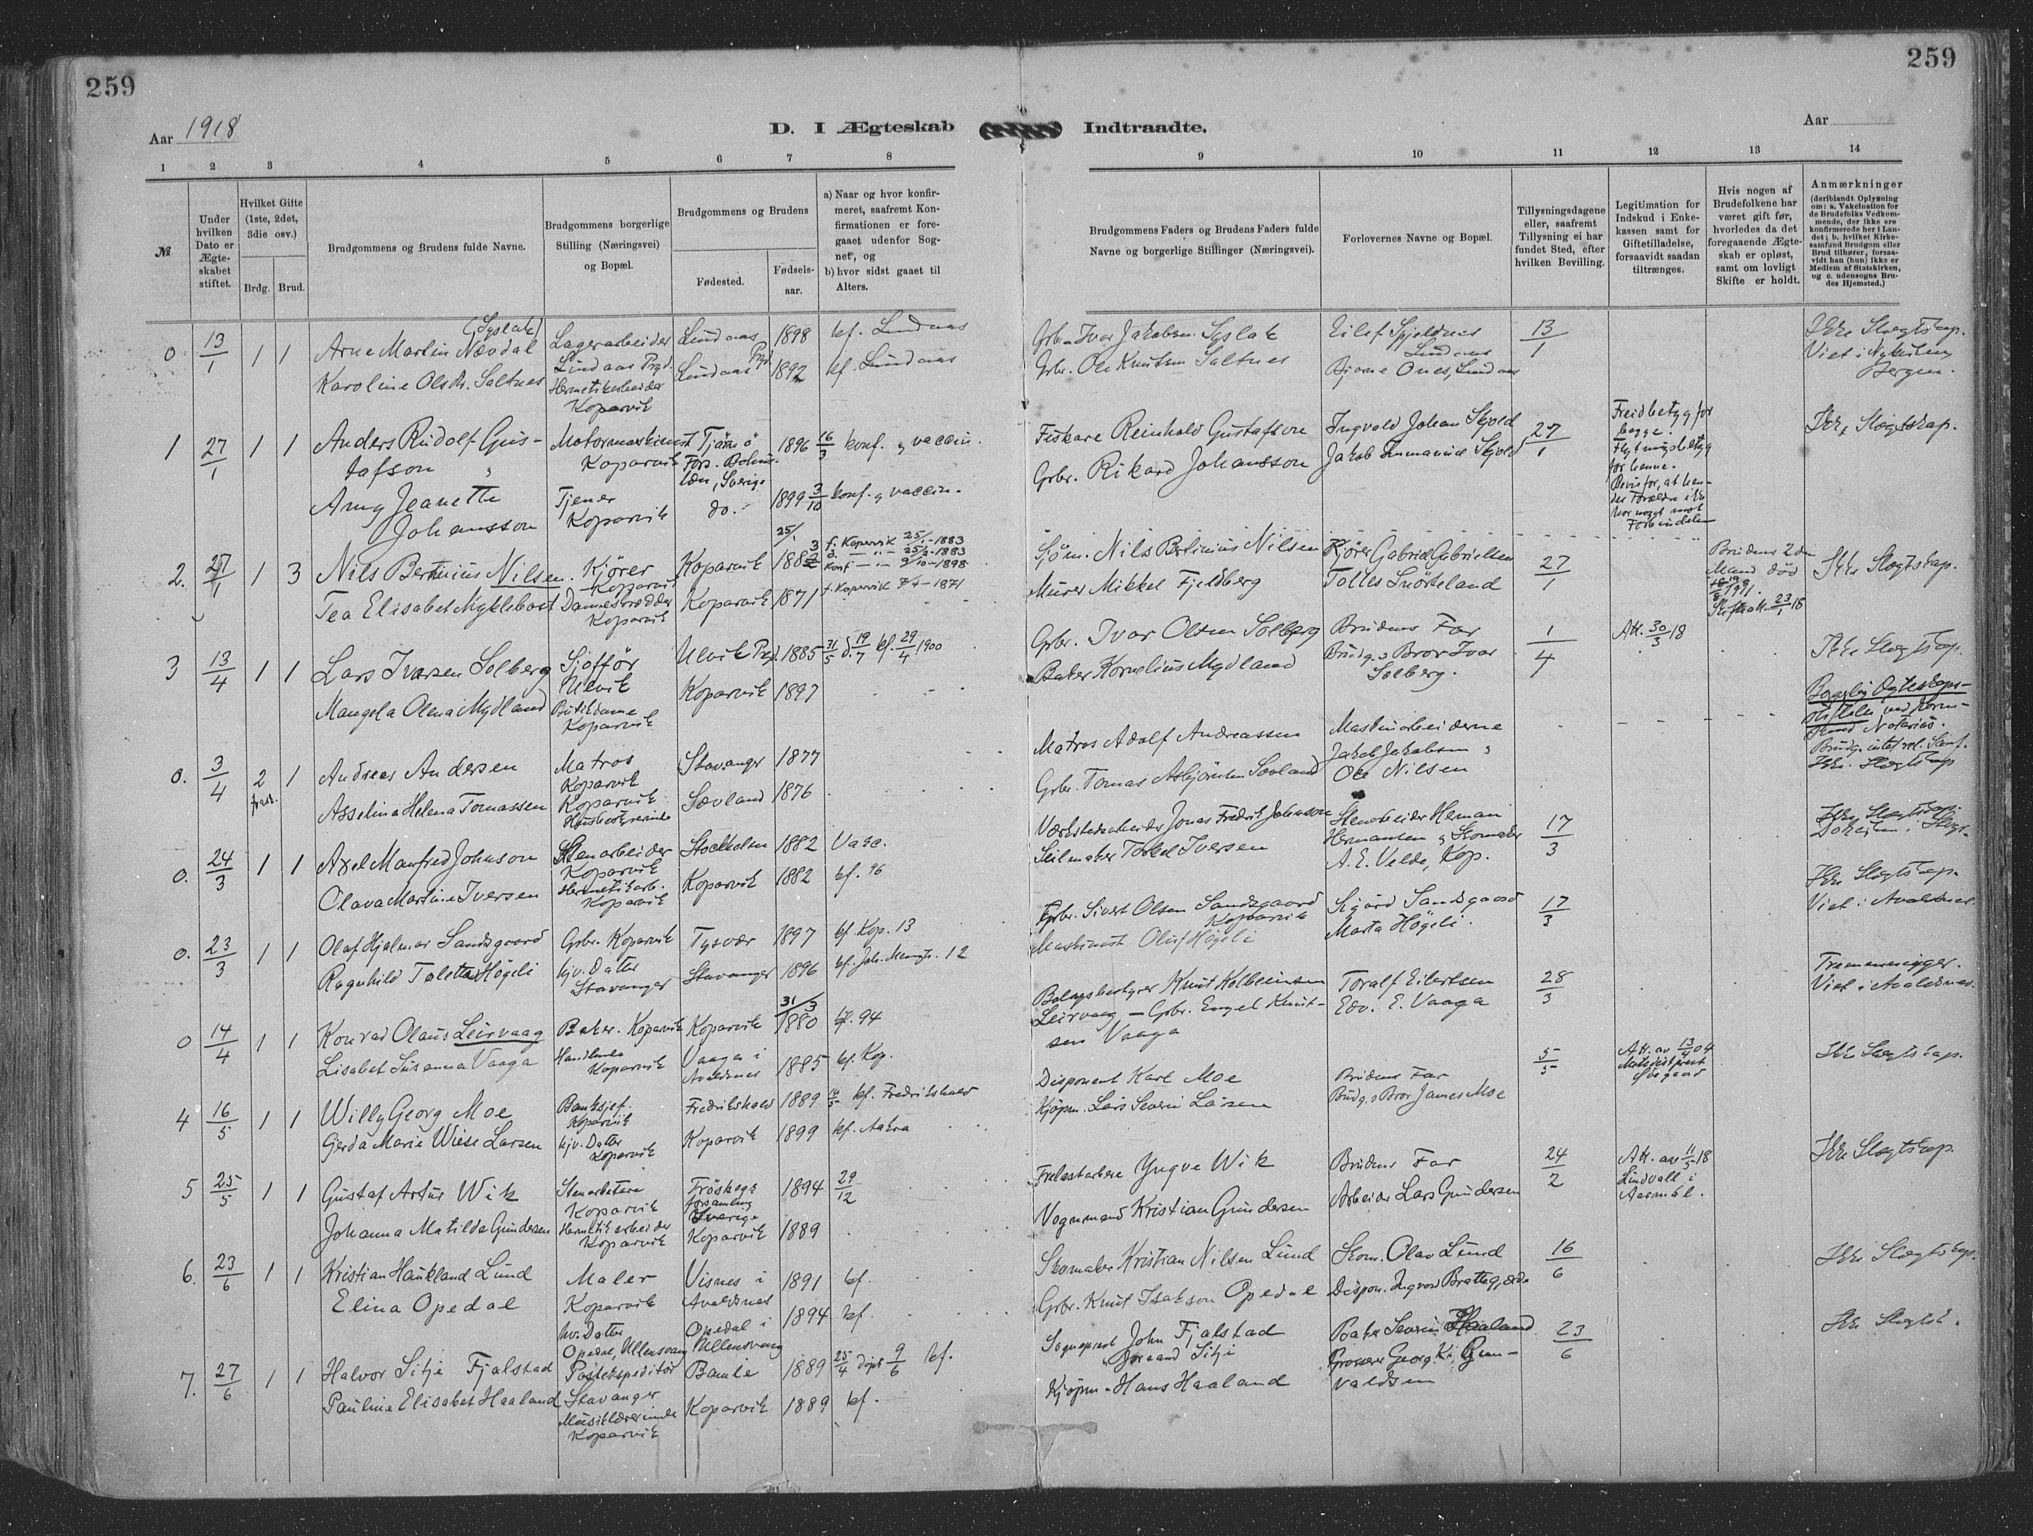 259
259
Aar 1918
D. I Ægteskab Indtraadte.
Aar
1 2 3 4 5 6 7 8 9 10 11 12 13 14
№
Under hvilken Dato er Ægteskabet stiftet.
Hvilket Gifte (1ste, 2det, 3die osv.)
Brdg. Brud.
Brudgommens og Brudens fulde Navne.
Brudgommens borgerlige Stilling (Næringsvei) og Bopæl.
Brudgommens og Brudens
Fødested. Fødselsaar.
a) Naar og hvor konfirmeret, saafremt Konfirmationen er foregaaet udenfor Sognet, og
b) hvor sidst gaaet til Alters.
Brudgommens Faders og Brudens Faders fulde Navne og borgerlige Stillinger (Næringsvei).
Forlovernes Navne og Bopæl.
Tillysningsdagene eller, saafremt Tillysning ei har fundet Sted, efter hvilken Bevilling.
Legitimation for Indskud i Enkekassen samt for Giftetilladelse, forsaavidt saadan tiltrænges.
Hvis nogen af Brudefolkene har været gift før, hvorledes da det foregaaende Ægteskab er opløst, samt om lovligt Skifte er holdt.
Anmærkninger
(deriblandt Oplysning om: a. Vakcination for de Brudefolks Vedkommende, der ikke ere konfirmerede her i Landet; b. hvilket Kirkesamfund Brudgom eller Brud tilhører, forsaavidt han (hun) ikke er Medlem af Statskirken, og c. udensogns Brudes Hjemsted.)
0 13/1 1 1 Arne Martin Nævdal (Syslak) Lagerarbeider Lindaas Prgd. Lindaas 1898 kf. Lindaas
Grb. Ivar Jakobsen Syslak Eilef Spjeldnes Lindaas 13/1 Ikke Slægtskap.
Karoline Olsdr. Saltnes Hermetikarbeider Koparvik Lindaas Prgd 1892 kf. Lindaas
Grbr. Ole Knutsen Saltnes Bjarne Ones, Lindaas Viet i Nykirken Bergen.
1 27/1 1 1 Anders Rudolf Gustafson Motormaskinist Koparvik Tjärnö Förs. Bohuslän, Sverige 1896 16/3 konf. og vaccin.
Fiskare Reinhold Gustafson Ingvald Johan Skjold 27/1 Ikke Slægtskap.
Amy Jeanette Johansson Tjener Koparvik do. 1899 3/10 konf. og vaccin.
Grbr. Rikard Johansson Jakob Immanuel Skjold
2. 27/1 1 3 Nils Bertinius Nilsen Kjører Koparvik Koparvik 25/1 1883
f. Kopervik 25/1-1883
Konf. 9/10-1898
Sjøm. Nils Bertinius Nilsen Kjører Gabriel Gabrielsen 27/1 Brudens 2den Mand død Ikke Slægtskap.
Tea Elisabet Myklebost Koparvik Koparvik 1871
Murer Mikkel Fjeldberg Tolles Snörteland
3 13/4 1 1 Lars Ivarsen Solberg Sjofför Ulvik Ulvik Prgd. 1885 31/5 d. 19/7 kf. 29/4 1900
Grbr. Ivar Olsen Solberg Brudens Far 1/4 Att. 30/3 18 Ikke Slægtskap.
Mangela Olena Mydland Butikdame Koparvik Koparvik 1897
Baker Kornelius Mydland Brudg.s Bror Ivar Solberg.
0. 3/4 2 1 Andreas Andersen Matros Koparvik Stavanger 1877
Matros Adolf Andreassen Maskinarbeiderne Jakob Jakobsen og Ole Nilsen
Asselina Helena Tomassen Koparvik Husbestyrerinde Sævland 1876
Grbr. Tomas Asbjørnsen Sævland Ikke Slægtskap
0. 24/3 1 1 Axel Manfred Johnson Stenarbeider Koparvik Stockholm 1882 Vacc.
Værkstedsarbeider Jonas Fredrik Johanson Stenarbeider Herman Hermansen og Skomaker A. E. Velde, Kop. 17/3
Olava Martine Iversen Hermetikarb. Koparvik Koparvik 1882 kf. 96
Seilmaker Torkel Iversen Ikke Slægtskap.
0. 23/3 1 1 Olaf Hjalmar Sandsgaard Grbr. Koparvik Tysvær 1897 kf. Kop. 13
Grbr. Sivert Olsen Sandsgaard Koparvik Sigurd Sandsgaard 17/3 Viet i Avaldsnes
Ragnhild Toletta Högeli hjv. Datter Stavanger Stavanger 1896 kf. Joh. Mengh. 12
Maskinist Oluf Högeli Marta Högeli.
0 14/4 1 1 Konrad Olaus Leirvaag Baker. Koparvik Koparvik 31/3 1880 kf. 94
Bolagsbestyrer Knut Kolbeinsen Leirvaag - Toralf Eilertsen 28/3 Tremenninger. Viet i Avaldsnes.
Lisabet Susanna Vaaga Koparvik Vaaga i Avaldsnes 1885 kf. Kop.
Grbr. Engel Knutsen Vaaga Edv. E. Vaaga
4 16/5 1 1 Willy Georg Moe Banksjef. Koparvik Fredrikshald 1889 kf. Fredrikshald
Disponent Karl Moe Brudens Far 5/5 Ikke Slægtskap.
Gerda Marie Wiese Larsen hjv. Datter Koparvik Koparvik 1899 kf. Aakra
Kjøpm. Lars Severin Larsen Brudg.s Bror James Moe
5 25/5 1 1 Gustaf Artur Wik Stenarbetare Koparvik Församling Sverige 1894 29/12
Yngve Wik Brudens Far 24/2 Att. av 11/5 18 Ikke Slægtskap.
Johanna Matilda Gundersen Hermetikarbeider Koparvik Koparvik 1889
Vognmand Kristian Gundersen Arbeider Lars Gundersen
6. 23/6 1 1 Kristian Haukland Lund Maler Koparvik Visnes i Avaldsnes 1891 kf.
Skomaker Kristian Nilsen Lund Skom. Olav Lund 16/6 Ikke Slægtskap.
Elina Opedal hv. Datter Opedal, Ullensvang Opedal i Ullensvang 1894 kf.
Grbr. Knut Isakson Opedal Dispon. Ingvald Brattegjerde
7. 27/6 1 1 Halvor Sitje Fjalstad Postekspeditör Stavanger Bamle 1889 25/4 döpt 9/6 kf.
Sogneprest John Fjalstad Baker Severin Haaland 23/6 Ikke Slegtsk.
Pauline Elisabet Haaland Musiklærerinde Koparvik Koparvik 1889 kf.
Kjøpm. Hans Haaland Grosserer Georg K. Grunvaldsen